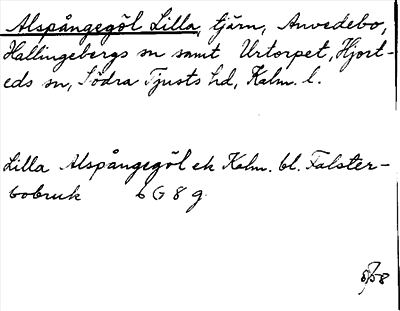 Alspångegöl Lilla, tjärn, Anvedebo,
Hallingebergs sn samt Urtorpet, Hjort-
eds sn, Södra Tjusts hd, Kalm. l.
Lilla Alspångegöl ek Kalm. bl. Falster-
bobruk 6 G 8 g.